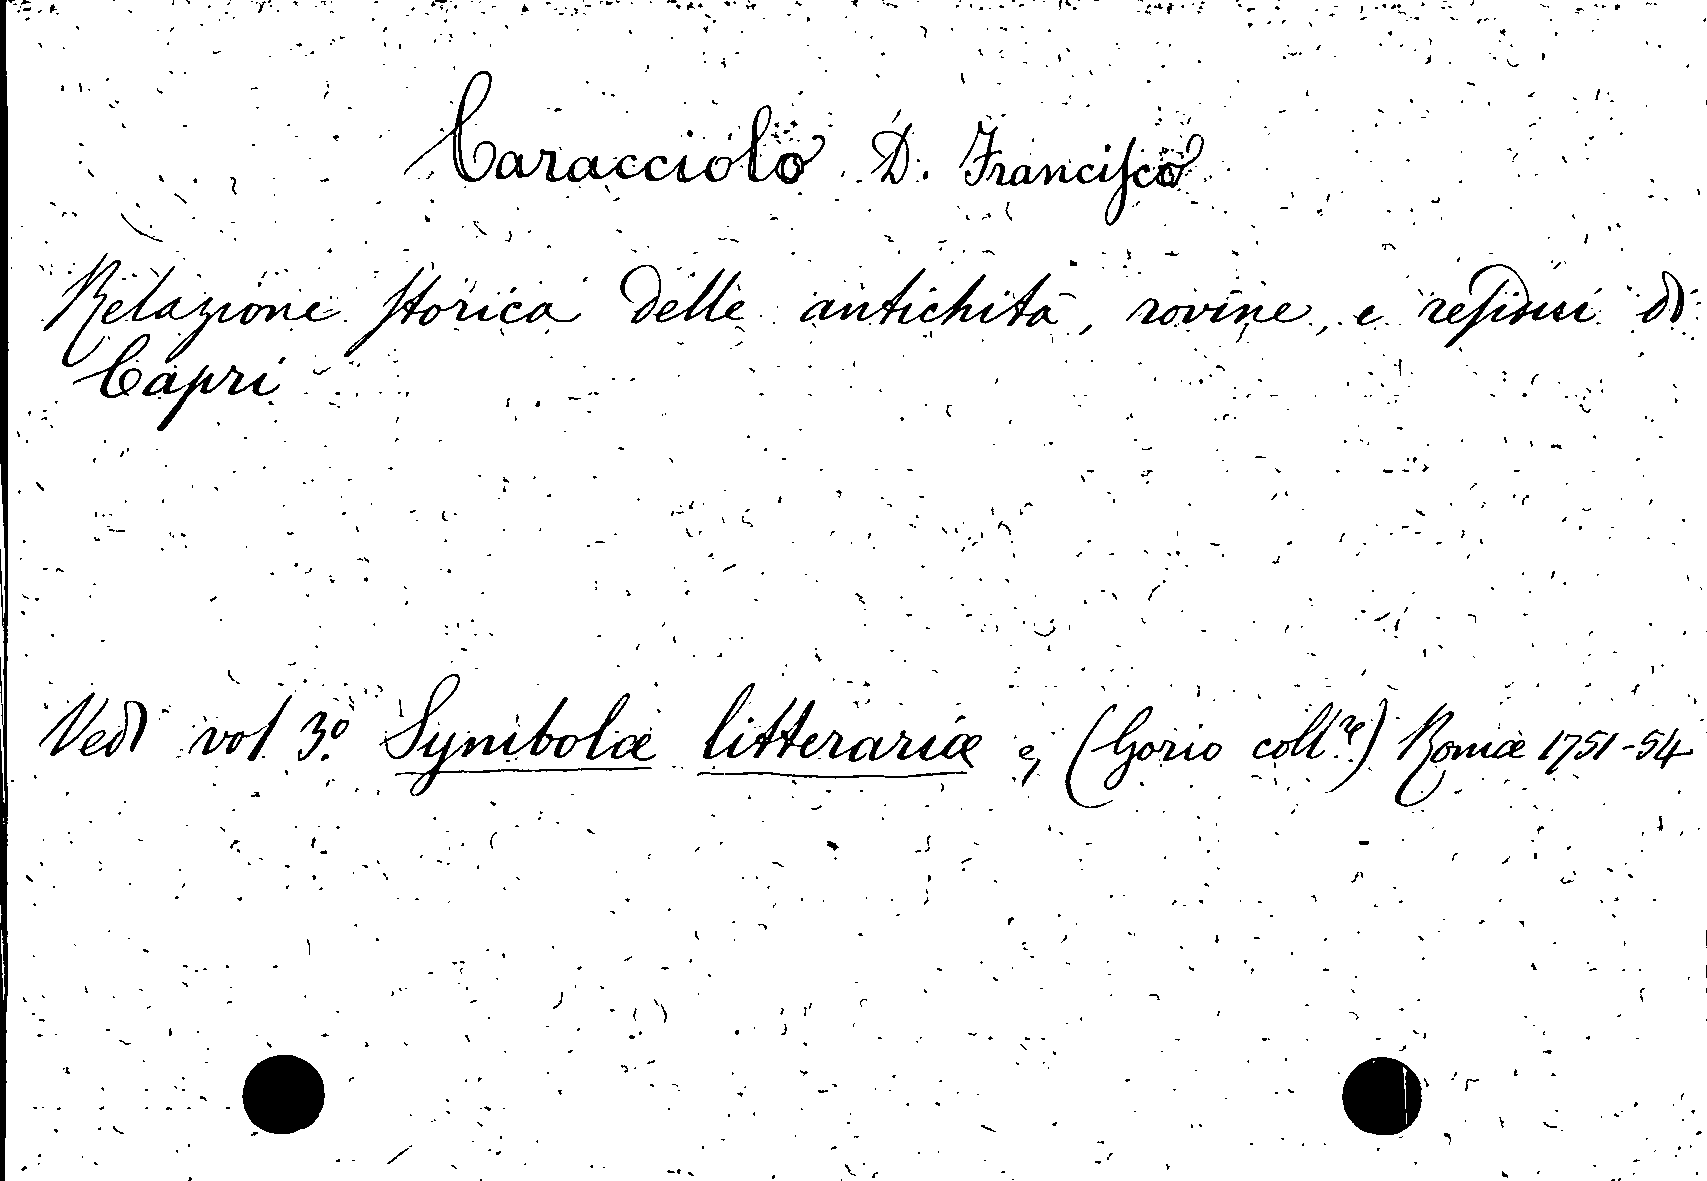 Caracciolo D. Francisco
Relazione storica delle antichità, rovine, e residui di
Capri
Vedi vol 3º. Symbolæ litterariæ &, (Gorio coll.re) Romæ 1751-54